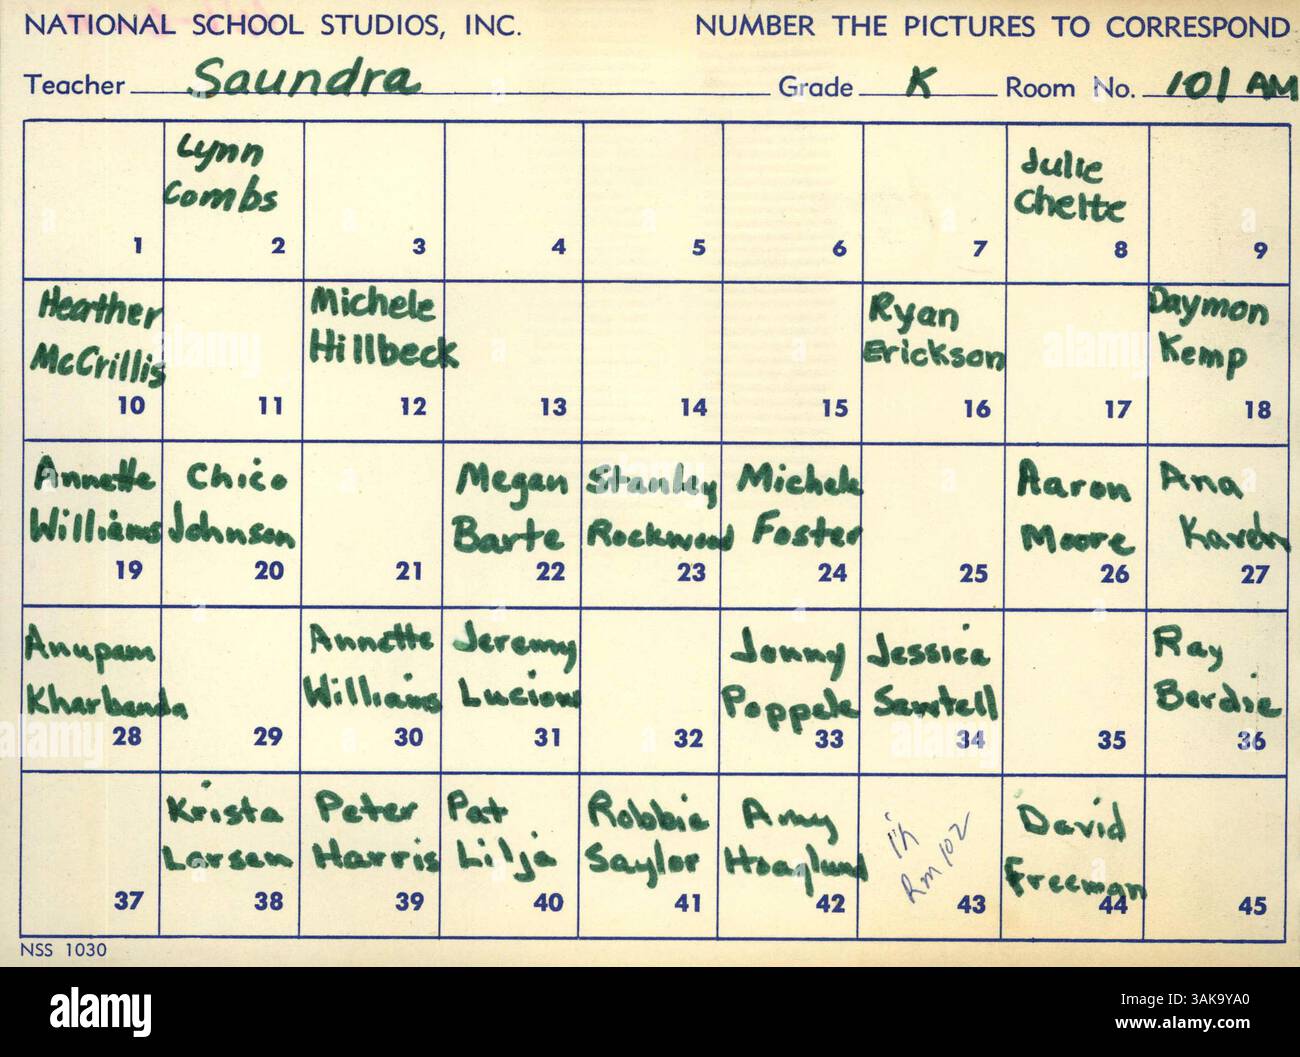 NATIONAL SCHOOL STUDIOS, INC. NUMBER THE PICTURES TO CORRESPOND
Teacher Saundra Grade K Room No. 101 AM
Lynn Combs 
Julie Chelte
1 2 3 4 5 6 7 8 9
Heather McCrillis
Michele Hillbeck
Ryan Erickson
Daymon Kemp
10 11 12 13 14 15 16 17 18
Annette Williams
Chico Johnson
Megan Barte
Stanley Rockwood
Michele Foster
Aaron Moore
Ana
19 20 21 22 23 24 25 26 27
Anupam Kharbanda
Annette Williams
Jeremy
Jonny Poppele
Jessica Sawtell
Ray Berdie
28 29 30 31 32 33 34 35 36
Krista Larsen
Peter Harris
Pat Lilja
Robbie Saylor
Amy Hoaglund
in Rm 102
David Freeman
37 38 39 40 41 42 43 44 45
NSS 1030
alamy
Image ID: 3AK9YA0
www.alamy.com